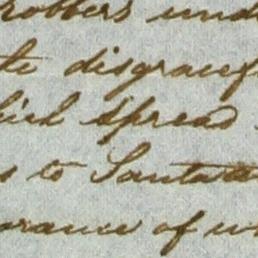 robbers und
te disgracef
lied spread
s to Santa
orance of w